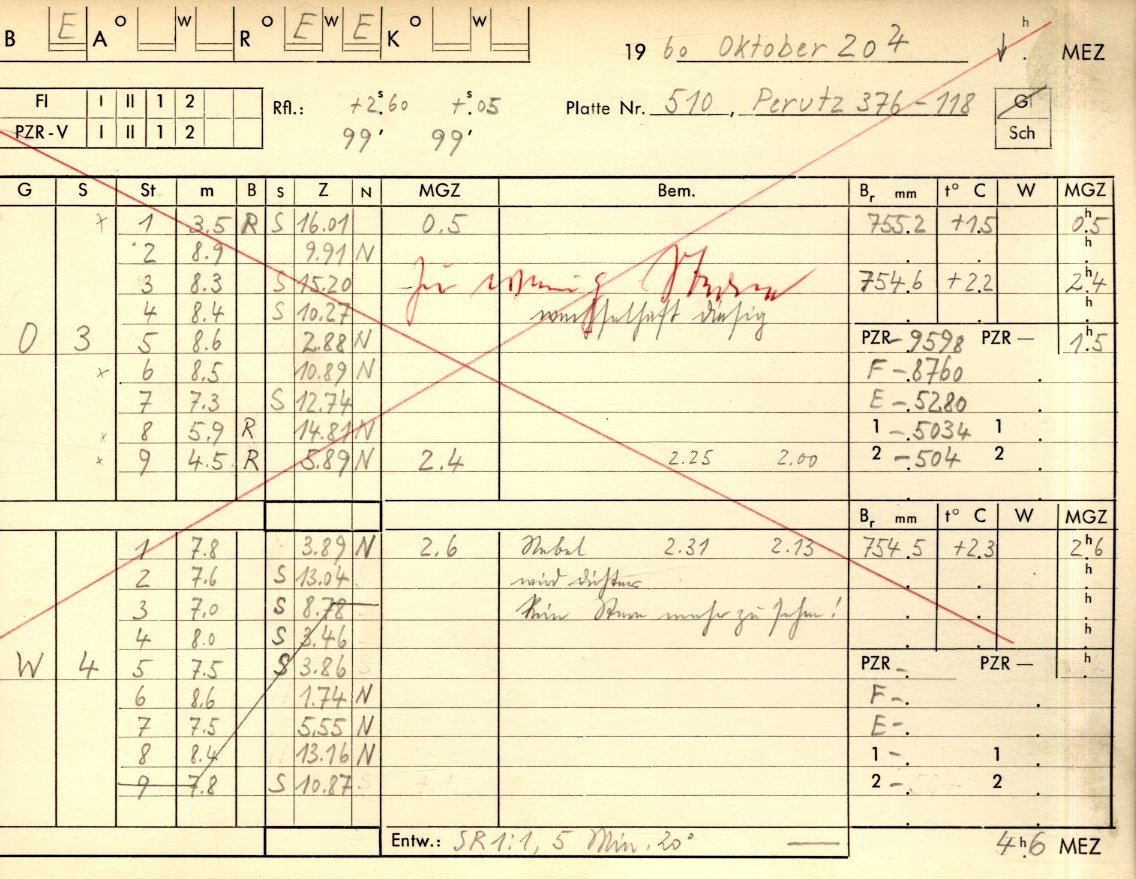 B E A O W R O E W E K O W
19 60 Oktober 20 4 h MEZ
FI I II 1 2
PZR-V I II 1 2
Rfl.: +2ˢ.60 +ˢ.05
99' 99'
Platte Nr. 510, Perutz 376-118
Gl
Sch
G S St m B S Z N MGZ Bem. Bᵣ mm t° C W MGZ
x 1 3.5 R S 16.01 0.5 755.2 +1.5 0ʰ.5
2 8.9 9.91 N h
3 8.3 S 15.20 zu wenig Sterne 754.6 +2.2 2ʰ.4
4 8.4 S 10.27 wechselhaft diesig h
O 3 5 8.6 2.88 N PZR -.9598 PZR — 1ʰ.5
x 6 8.5 10.89 N F -.8760
7 7.3 S 12.74 E -.5280
x 8 5.9 R 14.81 N 1 -.5034 1
x 9 4.5 R 5.89 N 2.4 2.25 2.00 2 -.504 2
Bᵣ mm t° C W MGZ
1 7.8 3.89 N 2.6 Nebel 2.31 2.13 754.5 +2.3 2ʰ.6
2 7.6 S 13.04 wird dichter h
3 7.0 S 8.78 Kein Stern mehr zu sehen! h
4 8.0 S 3.46 h
W 4 5 7.5 S 3.86 PZR -. PZR — h
6 8.6 1.74 N F -.
7 7.5 5.55 N E -.
8 8.4 13.16 N 1 -. 1
9 7.8 S 10.87 2 -. 2
Entw.: SR 1:1, 5 Min. 20° — 4ʰ.6 MEZ